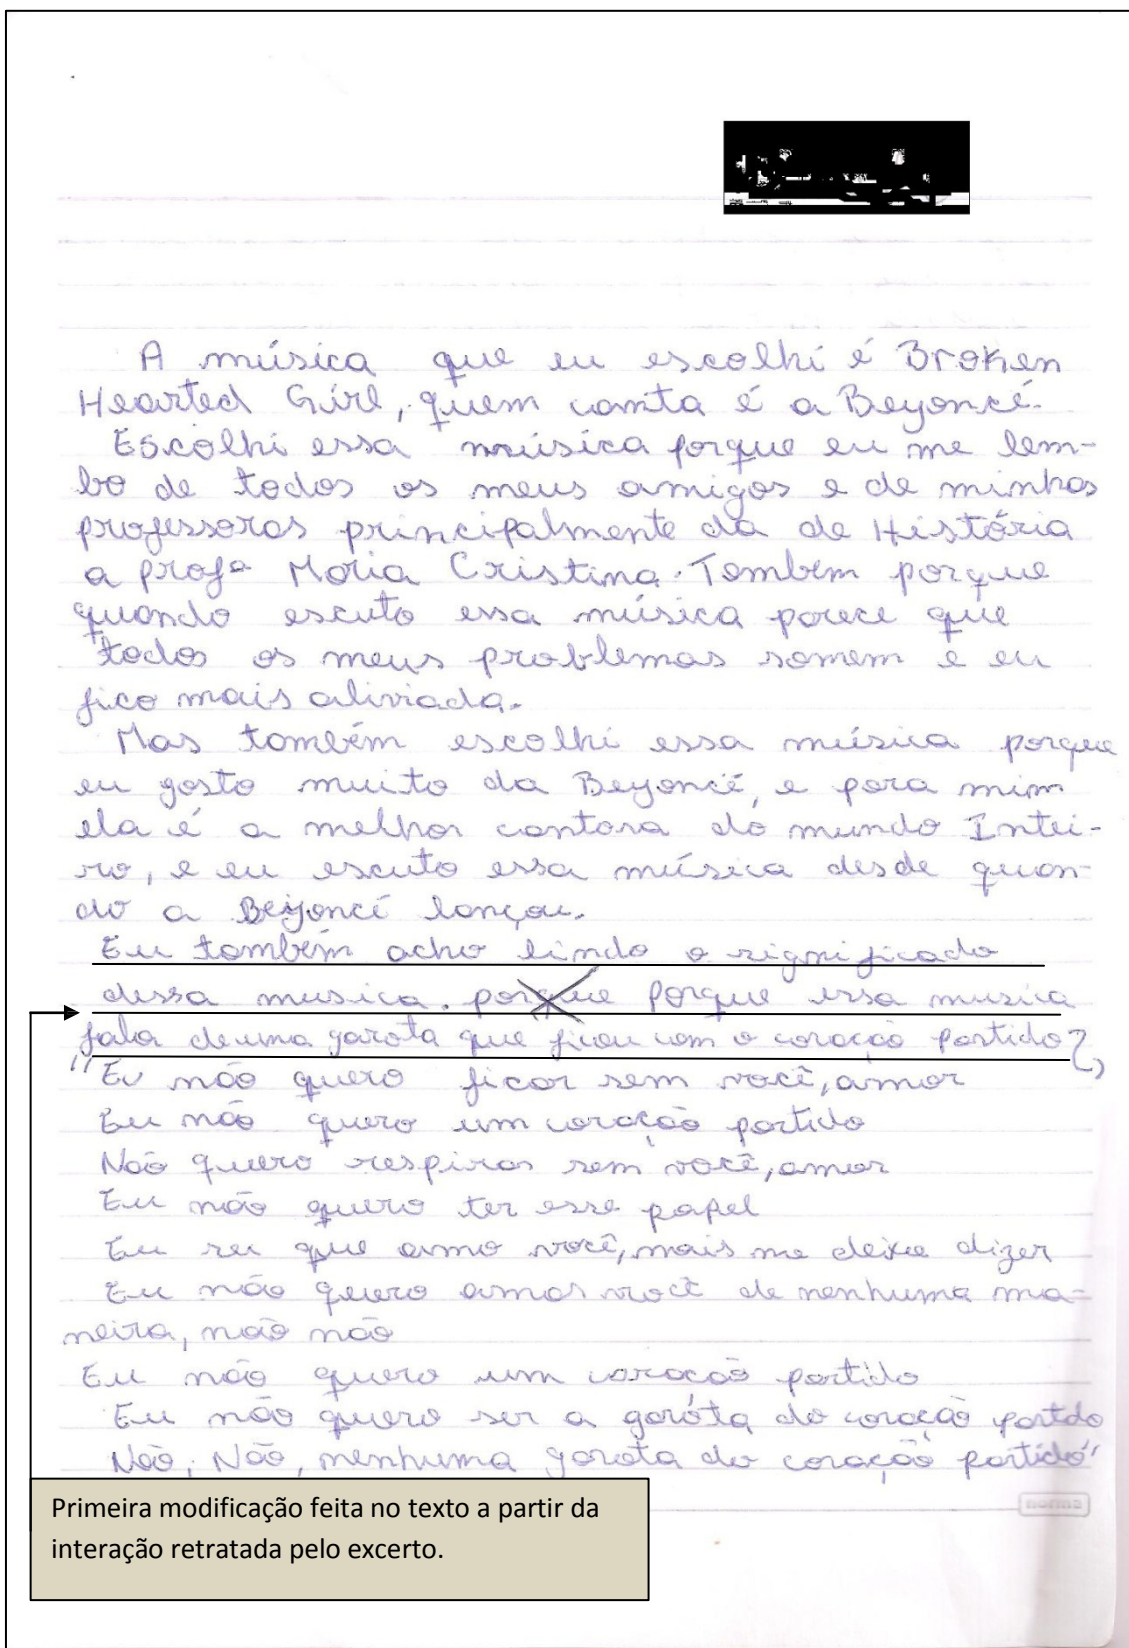 A música que eu escolhi é Broken
Hearted Girl, quem canta é a Beyoncé.
Escolhi essa música porque eu me lem-
bo de todos os meus amigos e de minhas
professoras principalmente da de História
a profª Maria Cristina. Tembém porque
quando escuto essa música parece que
todos os meus problemas somem e eu
fico mais aliviada.
Mas também escolhi essa música porque
eu gosto muito da Beyoncé, e para mim
ela é a melhor cantora do mundo Intei-
ro, e eu escuto essa música desde quan-
do a Beyoncé lançou.
Eu também acho lindo o significado
dessa musica. porque porque essa musica
fala de uma garota que ficou com o coração partido?,
"Eu não quero ficar sem você, amor
Eu não quero um coração partido
Não quero respirar sem você, amor
Eu não quero ter esse papel
Eu sei que amo você, mais me deixe dizer
Eu não quero amar você de nenhuma ma-
neira, não não
Eu não quero um coração partido
Eu não quero ser a garóta do coração partdo
Não, Não, nenhuma garota do coração partido"
norma
Primeira modificação feita no texto a partir da
interação retratada pelo excerto.